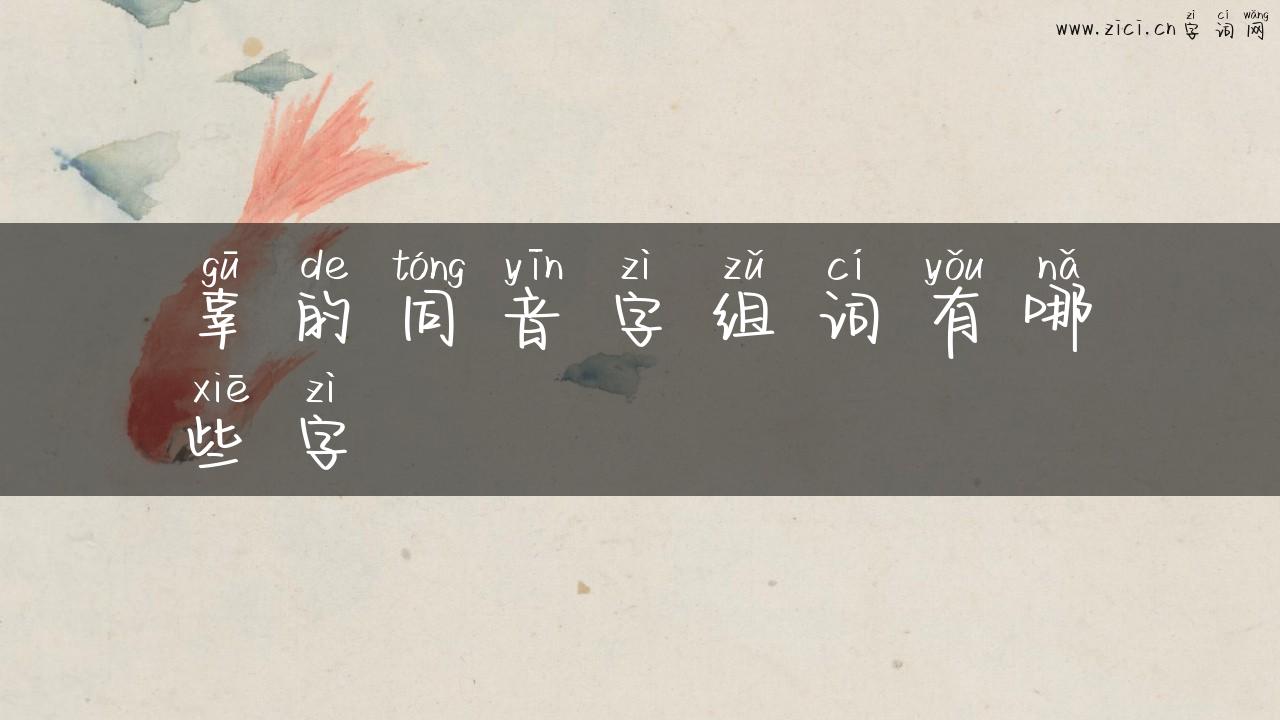 www.zici.cn 字词网
zì cí wǎng
gū de tóng yīn zì zǔ cí yǒu nǎ
辜的同音字组词有哪
xiē zì
些字